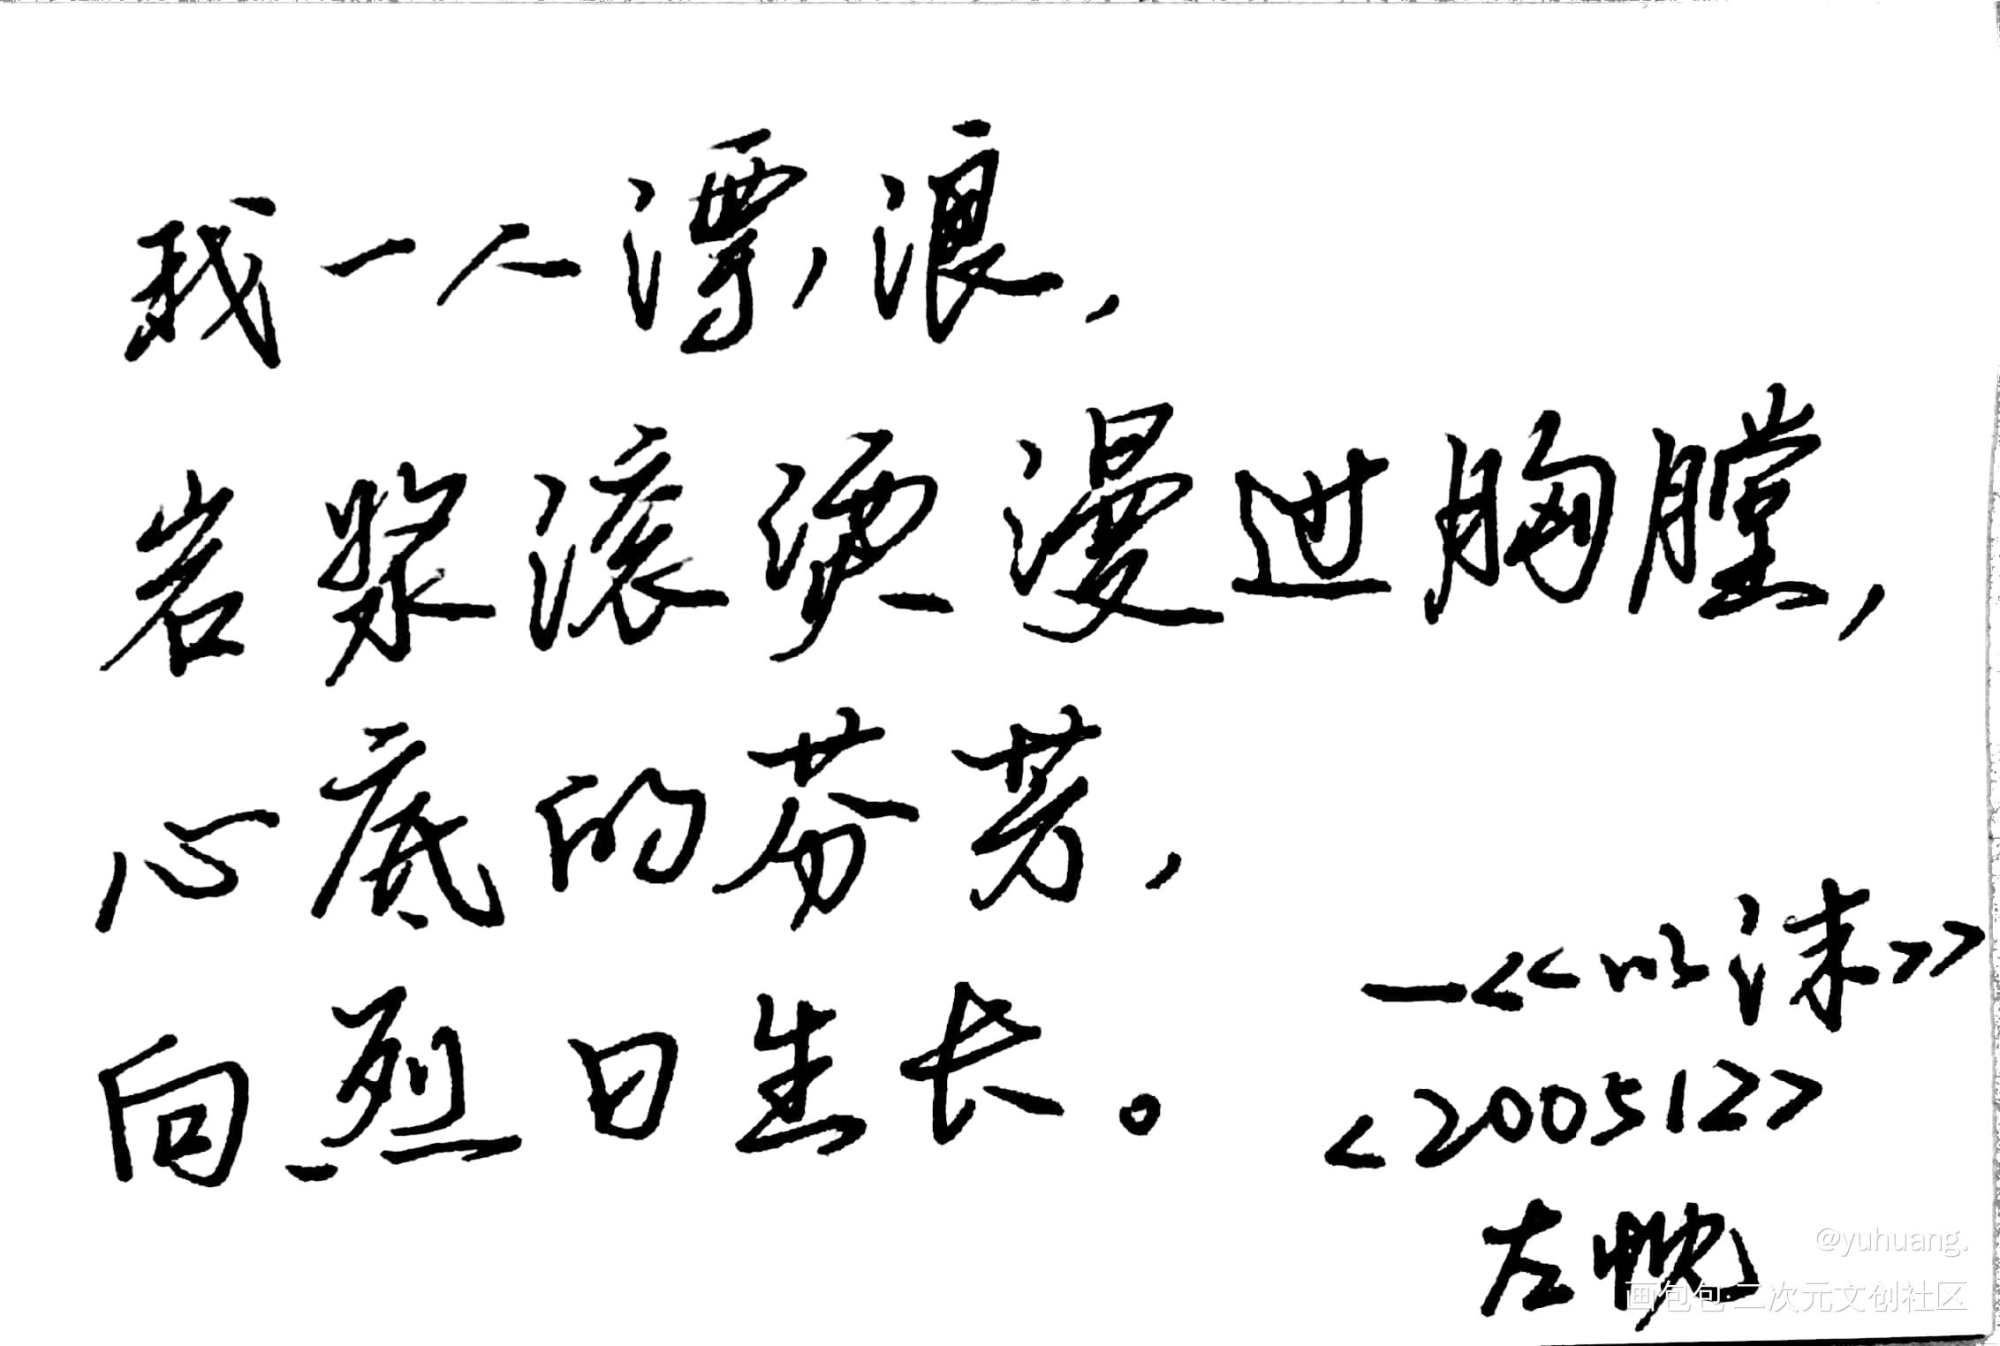 我一人漂浪，
岩浆滚烫漫过胸膛，
心底的芬芳，
向烈日生长。
—<<以沫>>
<200512>
左
@yuhuang.
画包包·二次元文创社区